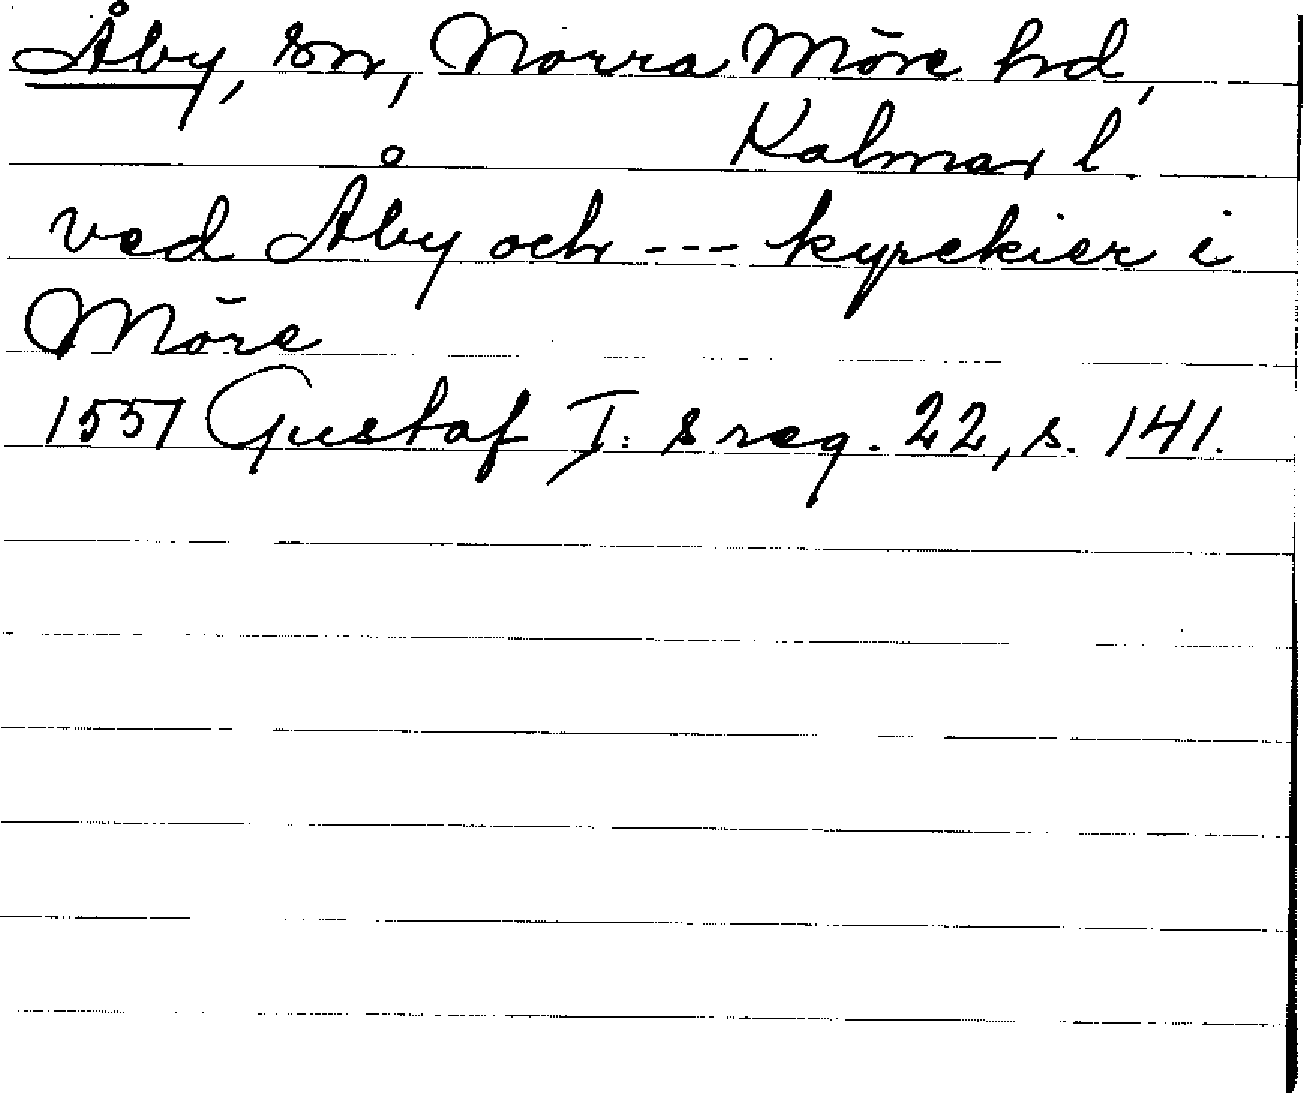 Åby, sn, Norra Möre hd,
Kalmar l.
ved Åby och --- kyrckier i
Möre
1551 Gustaf I: s reg. 22, s. 141.